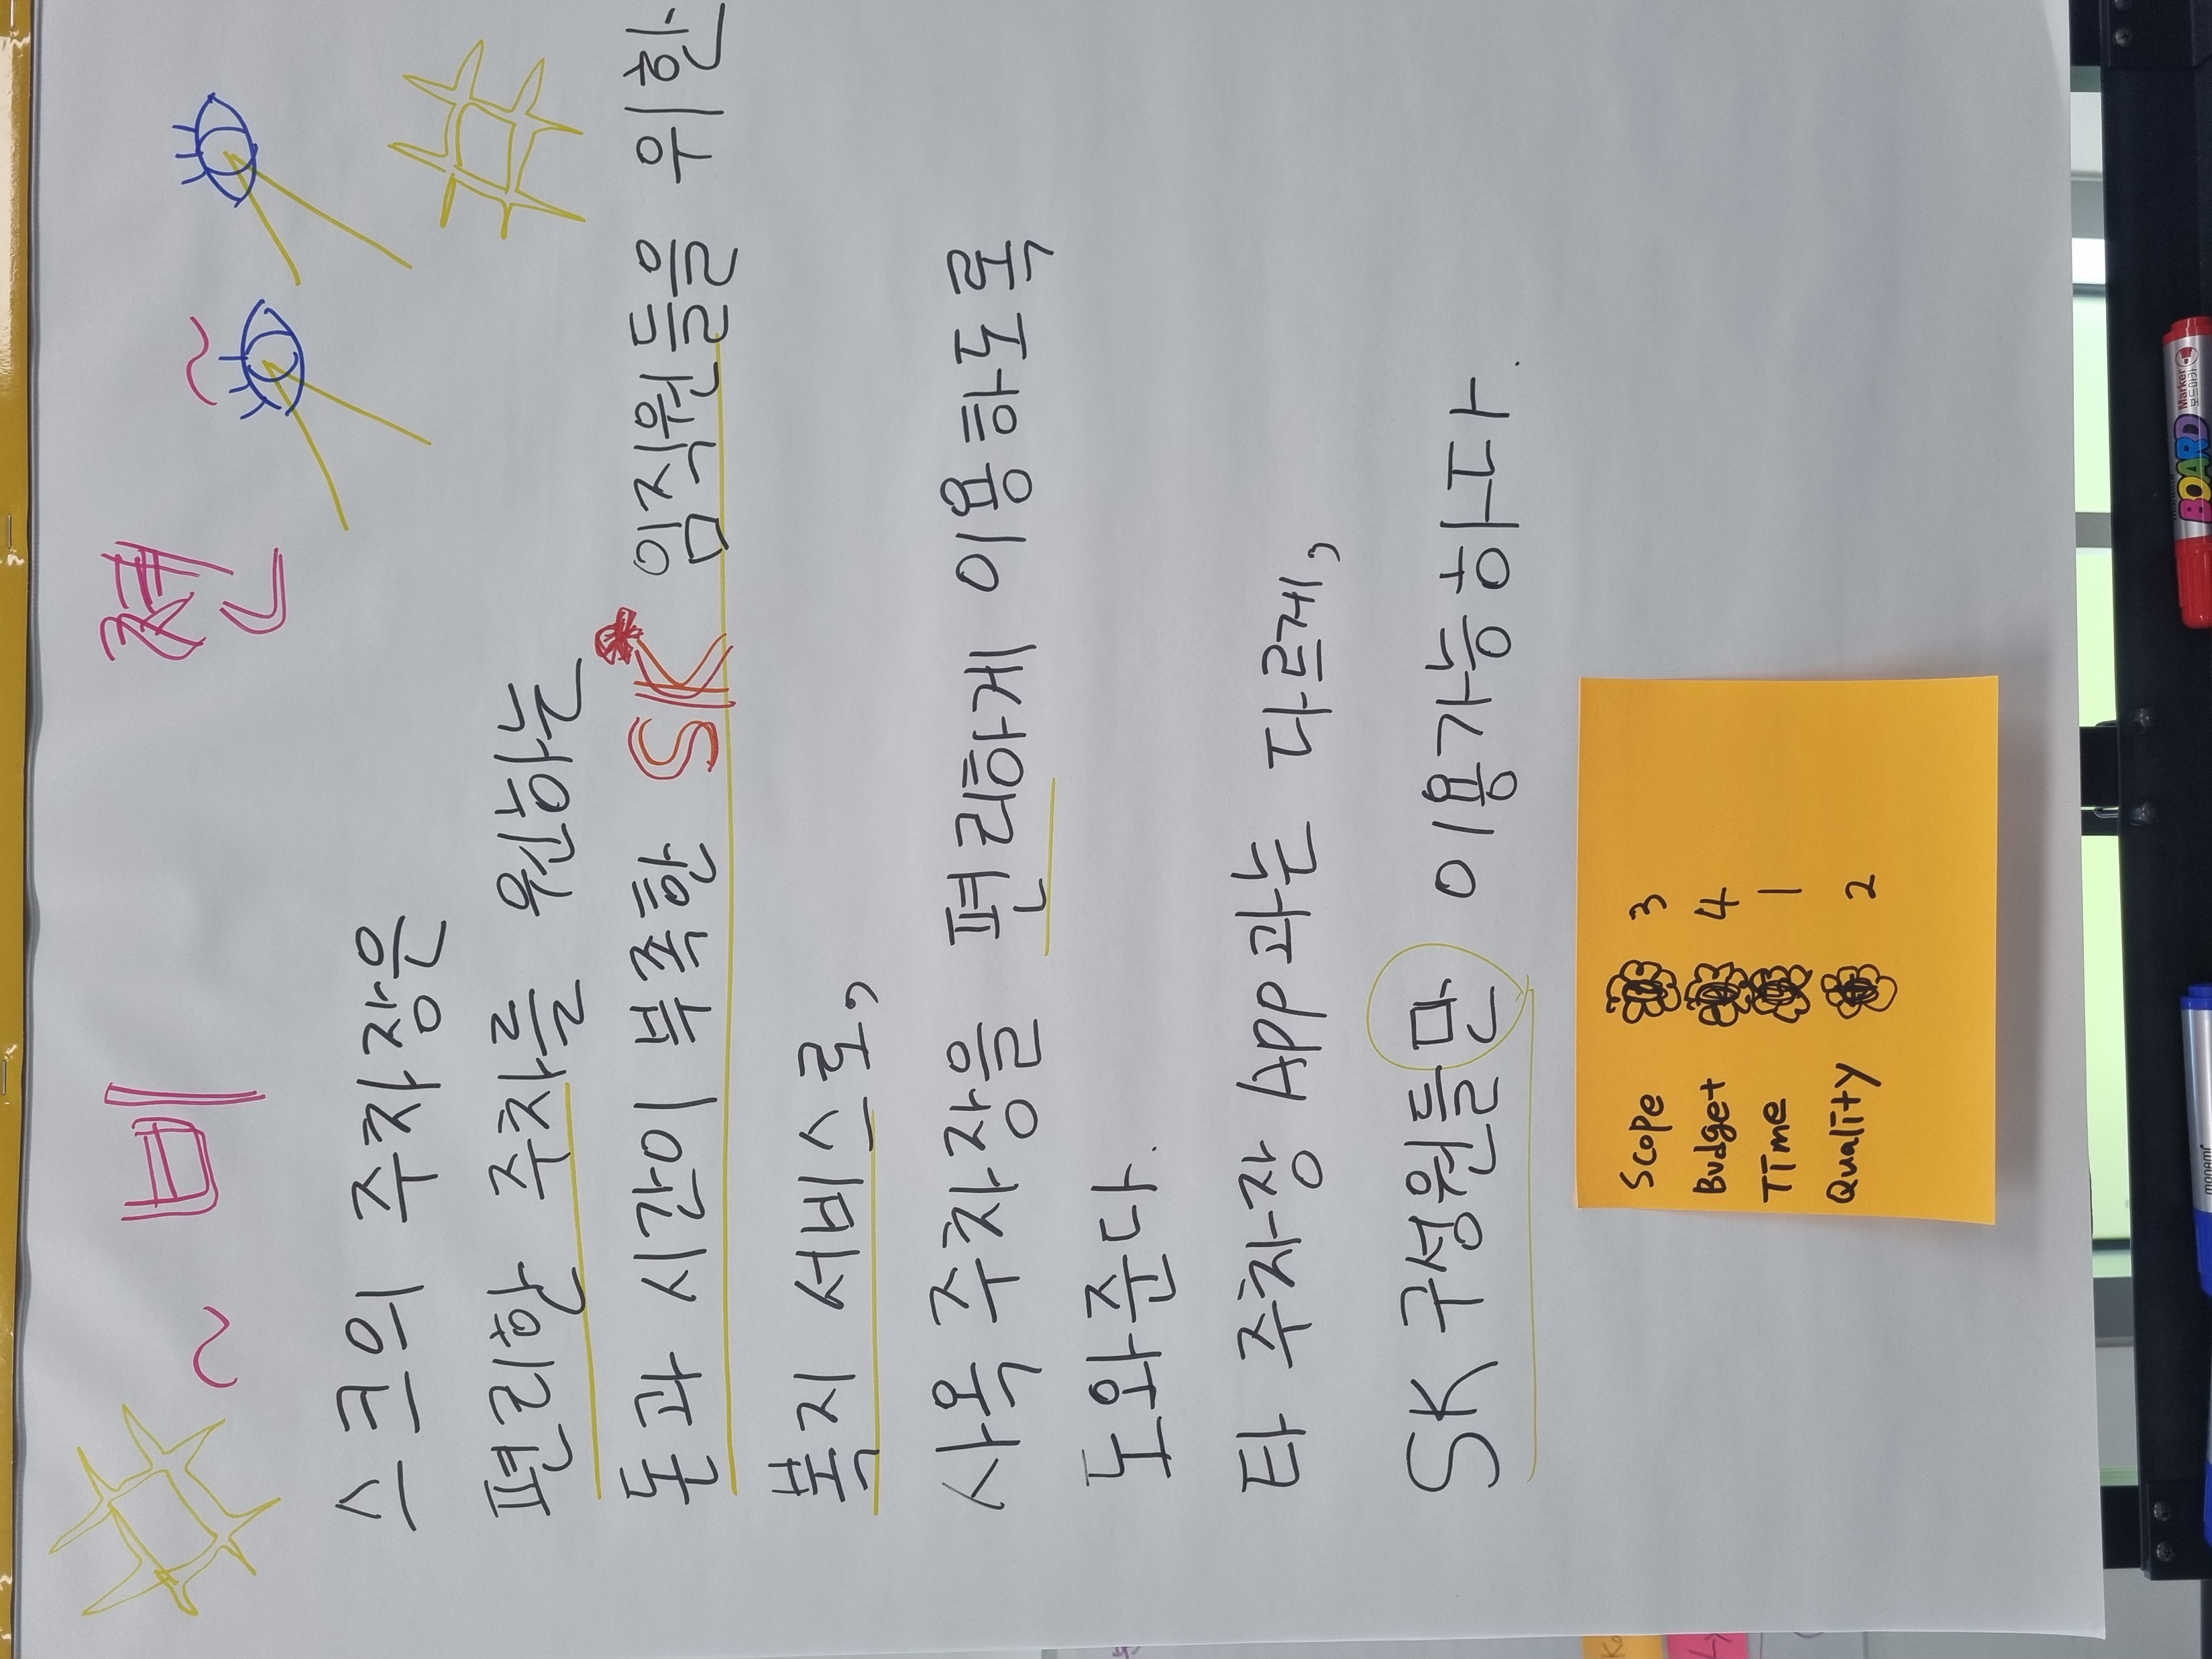 ~ 비 젼 ~
스크의 주차장은
편리한 주차를 원하는
돈과 시간이 부족한 SK 임직원들을 위한
복지 서비스로,
사옥 주차장을 편리하게 이용하도록
도와준다.
타 주차장 App과는 다르게,
SK 구성원들만 이용가능하다.
Scope 3
Budget 4
Time 1
Quality 2
BOARD Marker
monami